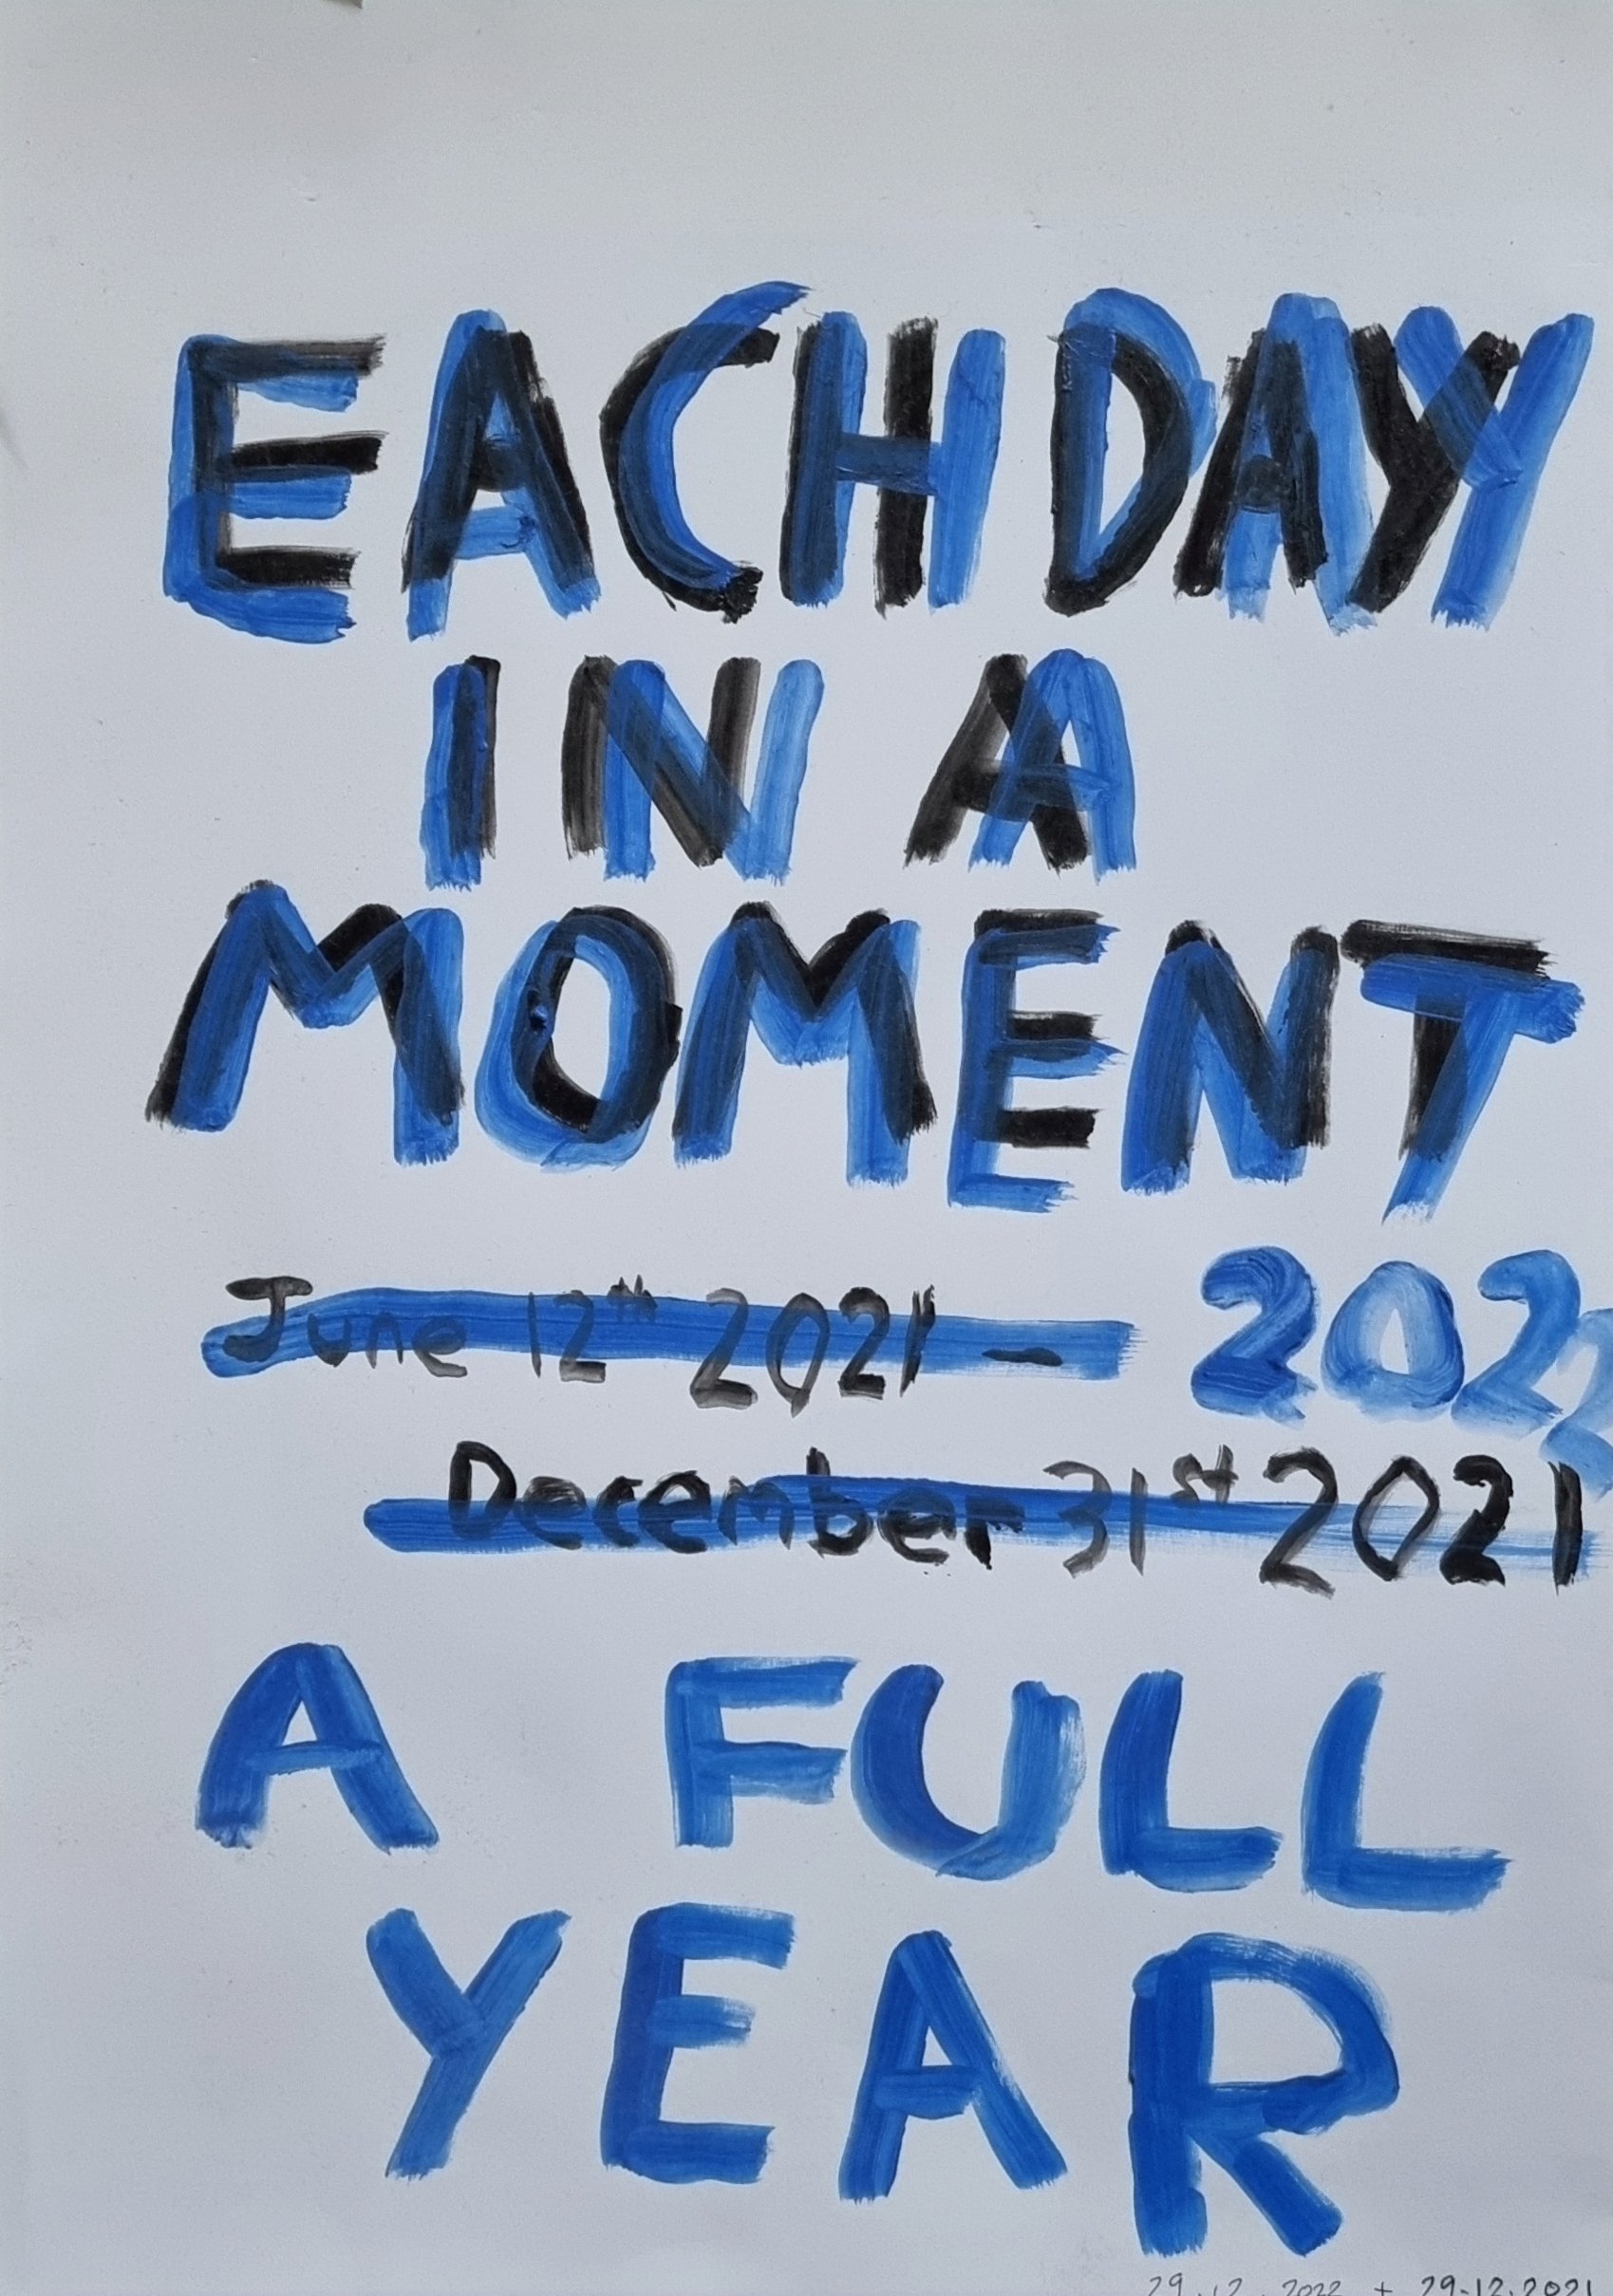 EACH DAY
IN A
MOMENT
June 12th 2021 - 2022
December 31st 2021
A FULL
YEAR
29.12.2022 + 29.12.2021